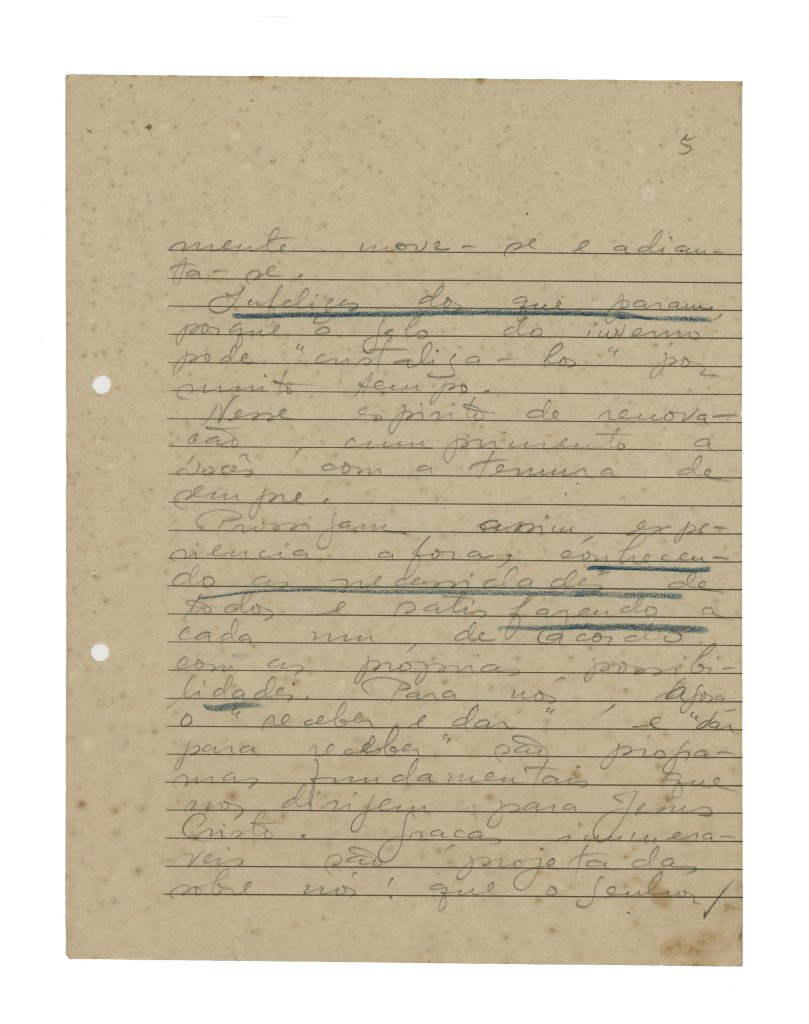 5
mente move-se e adian-
ta-se.
Infelizes dos que param,
porque o gelo do inverno
pode "cristaliza-los" por
muito tempo.
Nesse espirito de renova-
cão, cumprimento a
vocês, com a ternura de
sempre.
Prossijam assim, expe-
riencia afora, conhecen-
do as necessidades de
todos e satisfazendo a
cada um, de acordo
com as próprias possibi-
lidades. Para nós, agora
o "receber e dar" e "dar
para receber" são progra-
mas fundamentais que
nos dirijem para Jesus
Cristo. Graças inumera-
veis são projetadas
sobre nós! que o Senhor/